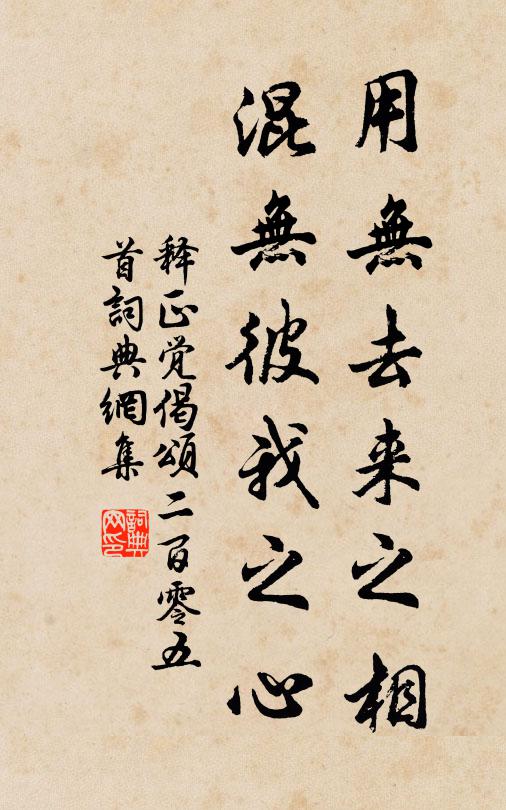 用無去来之相
混無彼我之心
释正覚偈頌二百零五
首詞典網集
詞典
网印